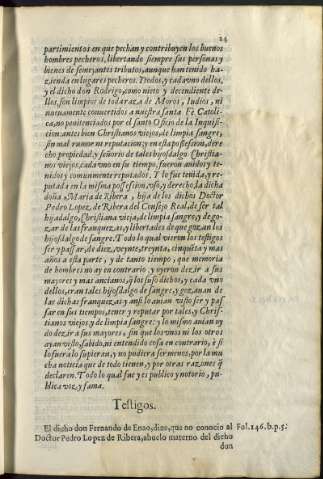 24
partimientos en que pechan y contribuyen los buenos
hombres pecheros, libertando siempre sus personas y
bienes de semejantes tributos, aunque han tenido ha-
zienda en lugares pecheros. Y todos, y cada vno dellos,
y el dicho don Rodrigo, como nieto y decendiente de-
llos, son limpios de toda raza de Moros, Iudios, ni
nueuamente conuertidos a nuestra santa Fè Catoli-
ca, no penitenciados por el santo Oficio de la Inquisi-
cion: antes bien Christianos viejos, de limpia sangre,
sin mal rumor ni reputacion; y en esta possession, dere
cho propiedad, y señorio de tales hijosdalgo Christia-
nos viejos, cada vno en su tiempo, fueron auidos y te-
nidos y comunmente reputados. Y lo fue tenida, y re-
putada en la misma possession, vso, y derecho, la dicha
doña Maria de Ribera, hija de los dichos Doctor
Pedro Lopez de Ribera del Consejo Real, de ser tal
hijadalgo, Christiana vieja, de limpia sangre, y de go-
zar de las franquezas, y libertades de que gozan los
hijosdalgo de sangre. Todo lo qual vieron los testigos
ser y passar, de diez, veynte, treynta, cinquẽta y mas
años a esta parte, y de tanto tiempo, que memoria
de hombres no ay en contrario, y oyeron dezir a sus
mayores y mas ancianos, q̃ los suso dichos, y cada vno
dellos, eran tales hijosdalgo de sangre, y gozauan de
las dichas franquezas, y ansi lo auian visto ser y pas-
sar en sus tiempos, tener y reputar por tales, y Chris-
tianos viejos y de limpia sangre: y lo mismo auian oy
do dezir a sus mayores, sin que los vnos ni los otros
ayan visto, sabido, ni entendido cosa en contrario, è si
lo fuera lo supieran, y no pudiera ser menos, por la mu
cha noticia que de todo tienen, y por otras razones q̃
declaren. Todo lo qual fue y es publico y notorio, pu-
blica voz, y fama.
Testigos.
El dicho don Fernando de Erao, dize, que no conocio al Fol. 146. b. p. 5:
Doctor Pedro Lopez de Ribera, abuelo materno del dicho
don